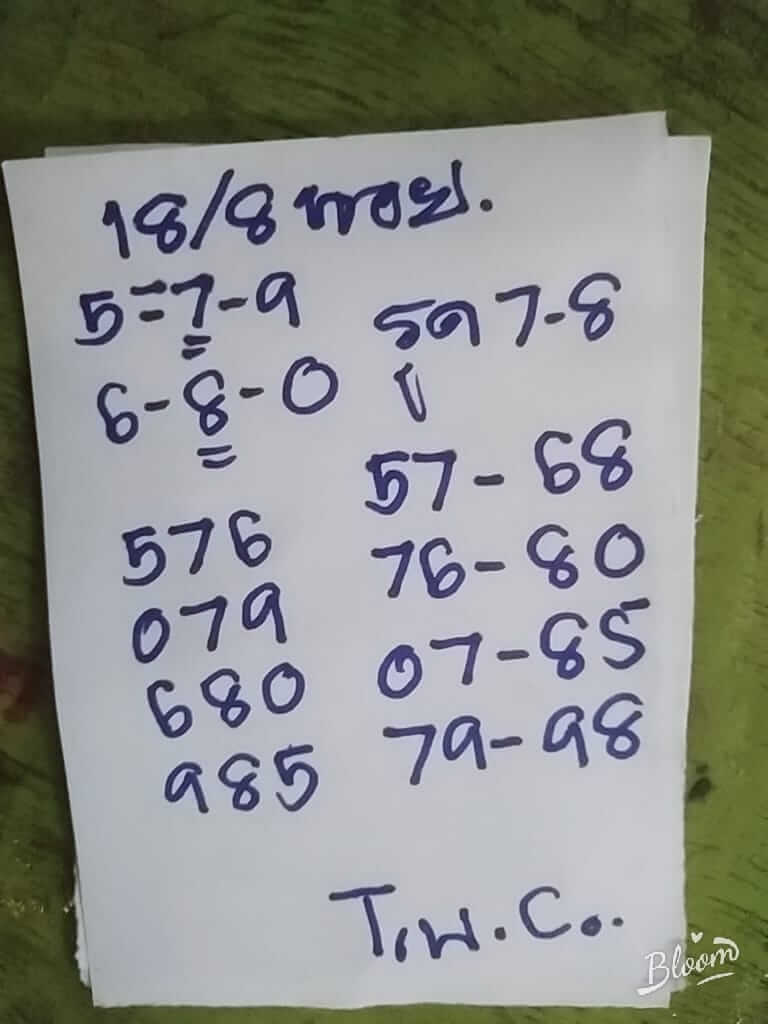 18/8 หวย.
5-7-9
6-8-0
รูด 7-8
57-68
76-80
07-85
79-98
576
079
680
985
Bloom